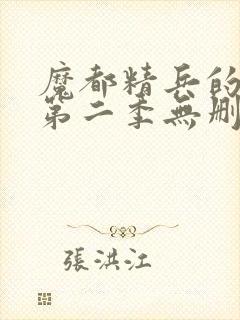 魔都精兵的
第二季無刪
張洪江